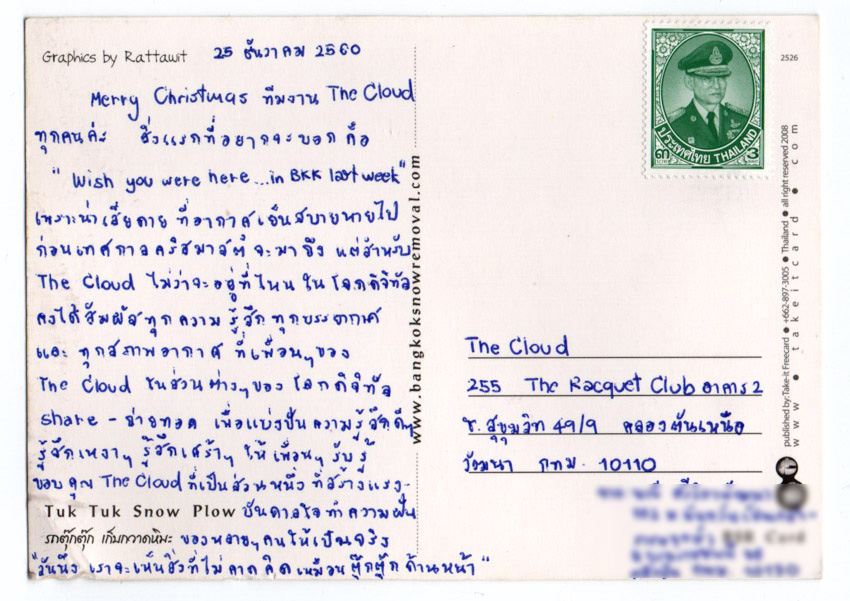 Graphics by Rattawit 25 ธันวาคม 2560
Merry Christmas ทีมงาน The Cloud
ทุกคนค่ะ สิ่งแรกที่อยากจะบอก คือ
"Wish you were here...in BKK last week"
เพราะน่าเสียดาย ที่อากาศเย็นสบายหายไป
ก่อนเทศกาลคริสมาสต์ จะมาถึง แต่สำหรับ
The Cloud ไม่ว่าจะอยู่ที่ไหน ใน โลกดิจิทัล
คงได้สัมผัสทุก ความ รู้สึก ทุกบรรยากาศ
และ ทุกสภาพอากาศ ที่เพื่อนๆของ
The Cloud ในส่วนต่างๆของ โลกดิจิทัล
share - ถ่ายทอด เพื่อแบ่งปัน ความรู้สึกดีๆ
รู้สึกเหงาๆ รู้สึกเศร้าๆ ให้ เพื่อนๆ รับรู้
ขอบคุณ The Cloud ที่เป็นส่วนหนึ่ง ที่สร้างแรง-
Tuk Tuk Snow Plow บันดาลใจ ทำความฝัน
รถตุ๊กตุ๊ก เก็บกวาดหิมะ ของหลายๆคนให้เป็นจริง
"วันนึง เราจะเห็นสิ่งที่ไม่ คาด คิด เหมือน ตุ๊กตุ๊ก ด้านหน้า"
www.bangkoksnowremoval.com
ประเทศไทย THAILAND
๓ 3
2526
published by: Take-It Freecard ● +662-897-3005 ● Thailand ● all right reserved 2008
www • takeitcard • com
The Cloud
255 The Racquet Club อาคาร 2
ซ. สุขุมวิท 49/9 คลองตันเหนือ
วัฒนา กทม. 10110